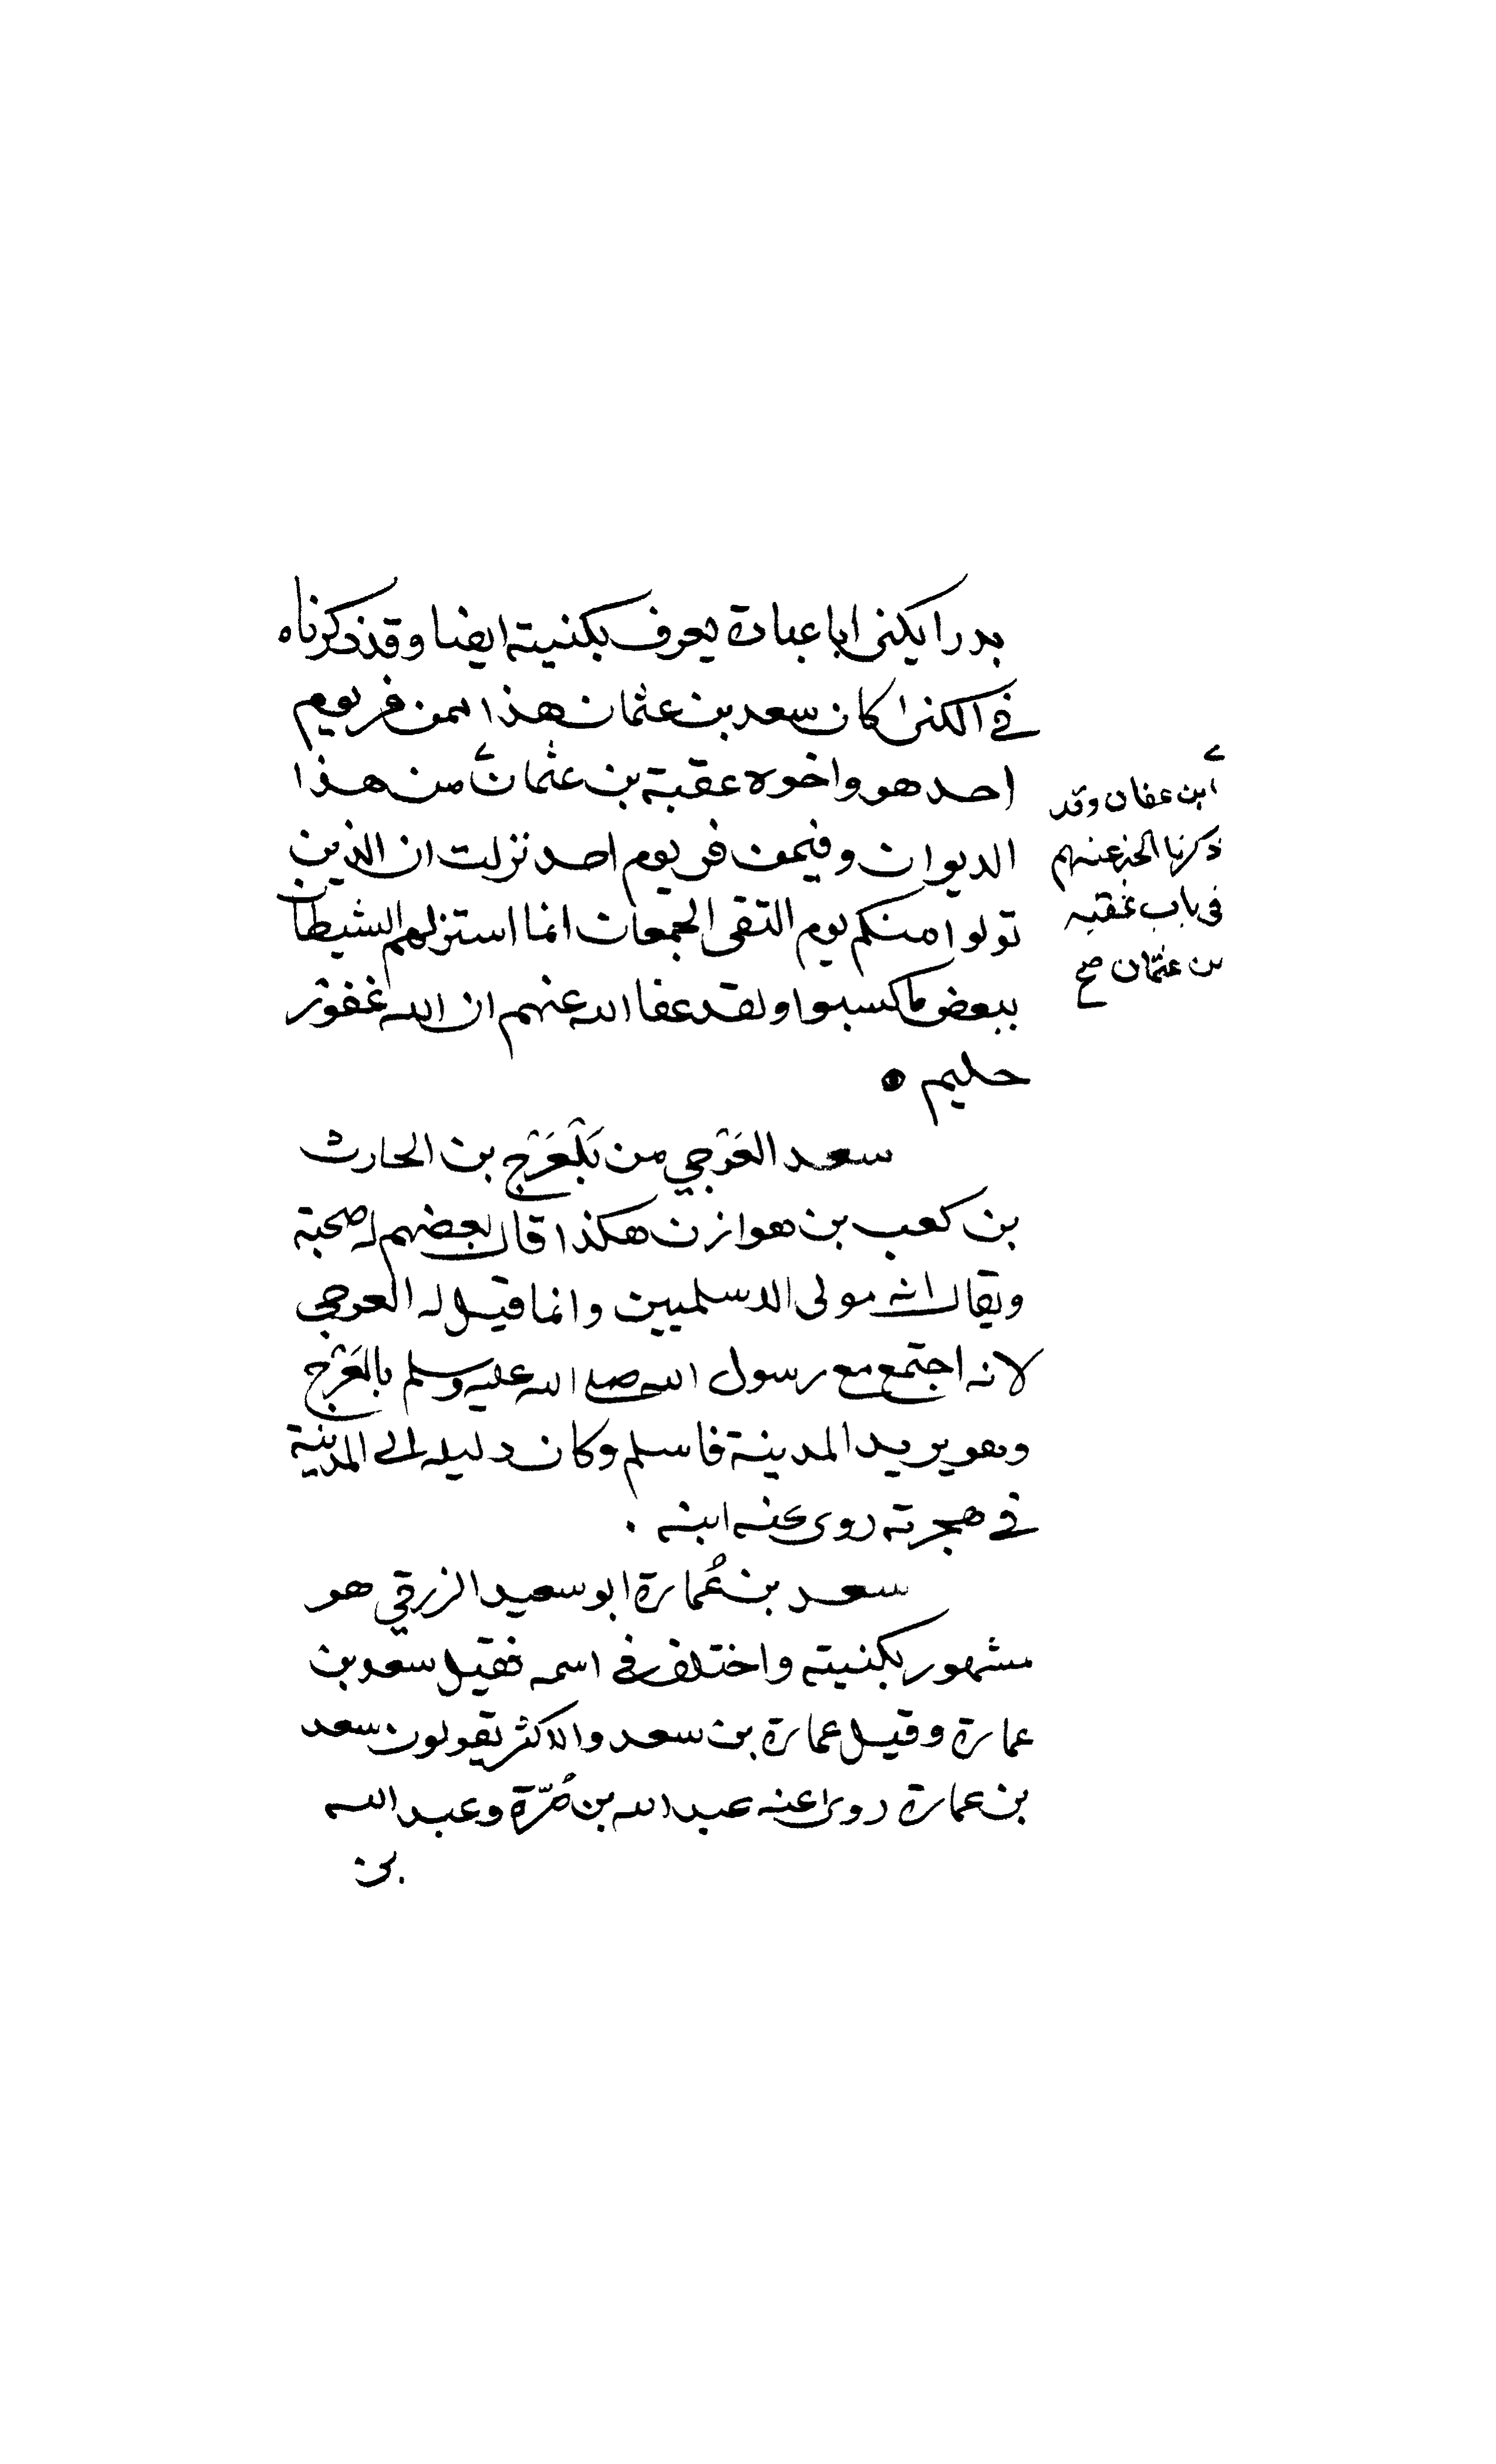 بدرا يكنى ابا عبادة يعرف بكنيته ايضا وقد ذكرناه
في الكنى كان سعد بن عثمان هذا ممن فر يوم
احد هو واخوه عقبة بن عثمان من هذا
الديوان وفيمن فر يوم احد نزلت ان الذين
تولوا منكم يوم التقى الجمعان انما استزلهم الشيطان
ببعض ما كسبوا ولقد عفا الله عنهم ان الله غفور
حليم
سعد العَرْجي من بَلْعَرْج بن الحارث
بن كعب بن هوازن هكذا قال بعضهم له صحبة
ويقال انه مولى الاسلميين وانما قيل له العرجي
لانه اجتمع مع رسول الله صلى الله عليه وسلم بالعَرْج
وهو يريد المدينة فاسلم وكان دليله الى المدينة
في هجرته روى عنه ابنه .
سعد بن عُمارة ابو سعيد الزرقي هو
مشهور بكنيته واختلف في اسمه فقيل سعد بن
عمارة وقيل عمارة بن سعد والاكثر يقولون سعد
بن عمارة روى عنه عبد الله بن مُرّة وعبد الله
بن
ابن عفان وقد
ذكرنا الخبر عنهم
في باب عقبه
بن عثمان صح